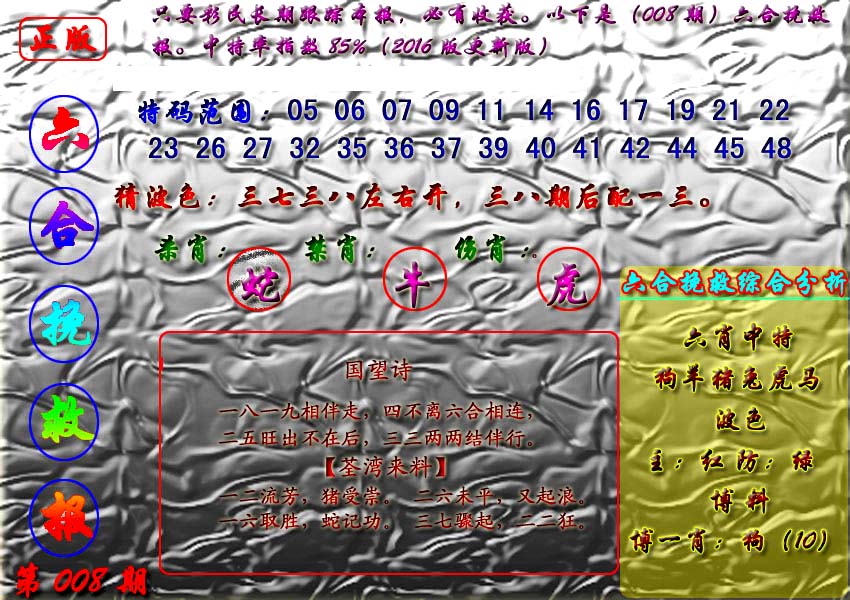 正版
只要彩民长期跟踪本报，必有收获。以下是（008期）六合挽救
报。中特率指数85%（2016版更新版）
六合挽救报
第008期
特码范围：05 06 07 09 11 14 16 17 19 21 22
23 26 27 32 35 36 37 39 40 41 42 44 45 48
猜波色：三七三八左右开，三八期后配一三。
杀肖：蛇 禁肖：牛 伤肖：虎
国望诗
一八一九相伴走，四不离六合相连，
二五旺出不在后，三三两两结伴行。
【荃湾来料】
一二流芳，猪受崇。 二六未平，又起浪。
一六取胜，蛇记功。 三七骤起，二二狂。
六合挽救综合分析
六肖中特
狗羊猪兔虎马
波色
主：红防：绿
博料
博一肖：狗（10）